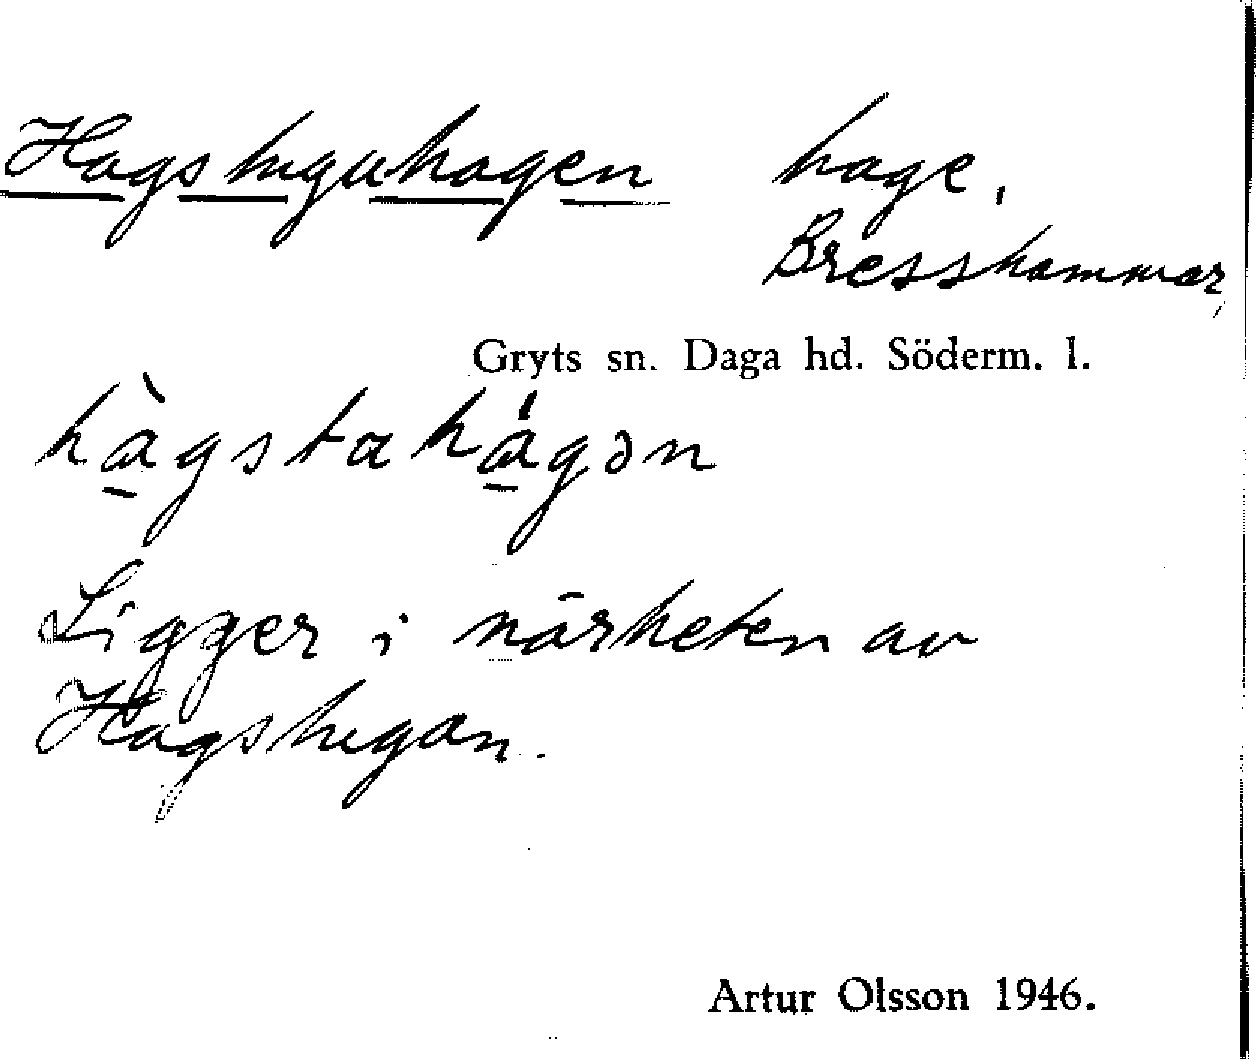 Hagstuguhagen hage,
Bresshammar,
Gryts sn. Daga hd. Söderm. l.
hàgstahágən
Ligger i närheten av
Hagstugan.
Artur Olsson 1946.